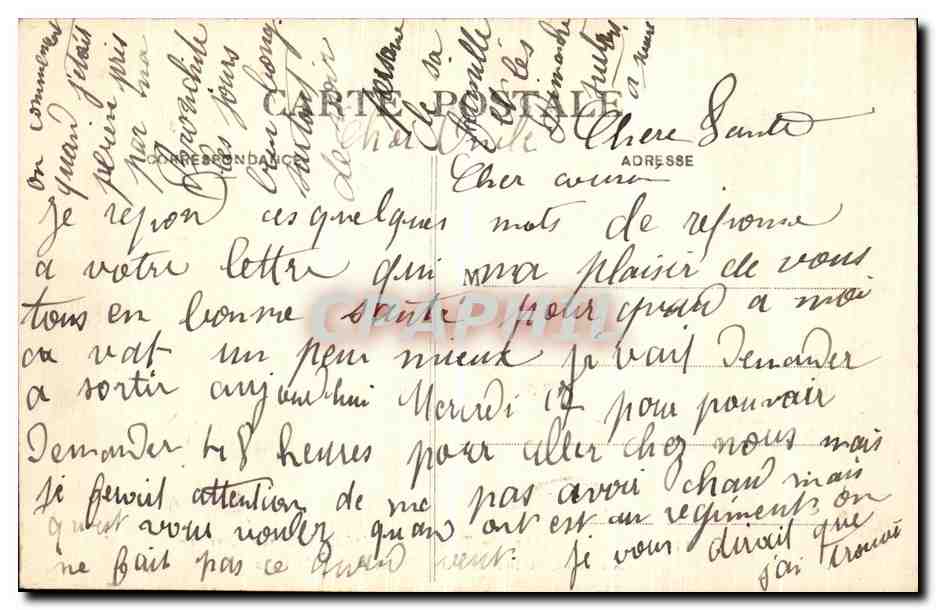 CARTE POSTALE
CORRESPONDANCE
ADRESSE
Chere Sante
Cher cousin
Je repon ces quelques mots de reponse
a votre lettre qui ma plaisir de vous
M
tous en bonne sante pour quand a moi
ca vat un peu mieux je vait demander
a sortir aujourdhui Mercredi 17 pour pouvoir
demander 48 heures pour aller chez nous mais
je feroit attention de me pas avoir chaud mais
quest vous voulez quand ont est au regiment on
ne fait pas ce quend veut. je vous dirait que
j'ai trouvé
on commement
quand j'etait
perien pris
par ma
Bronchite
les jours
bien long
surtout
de voir
personne
de sa
famille
et les
dimanche
CPAPHIL